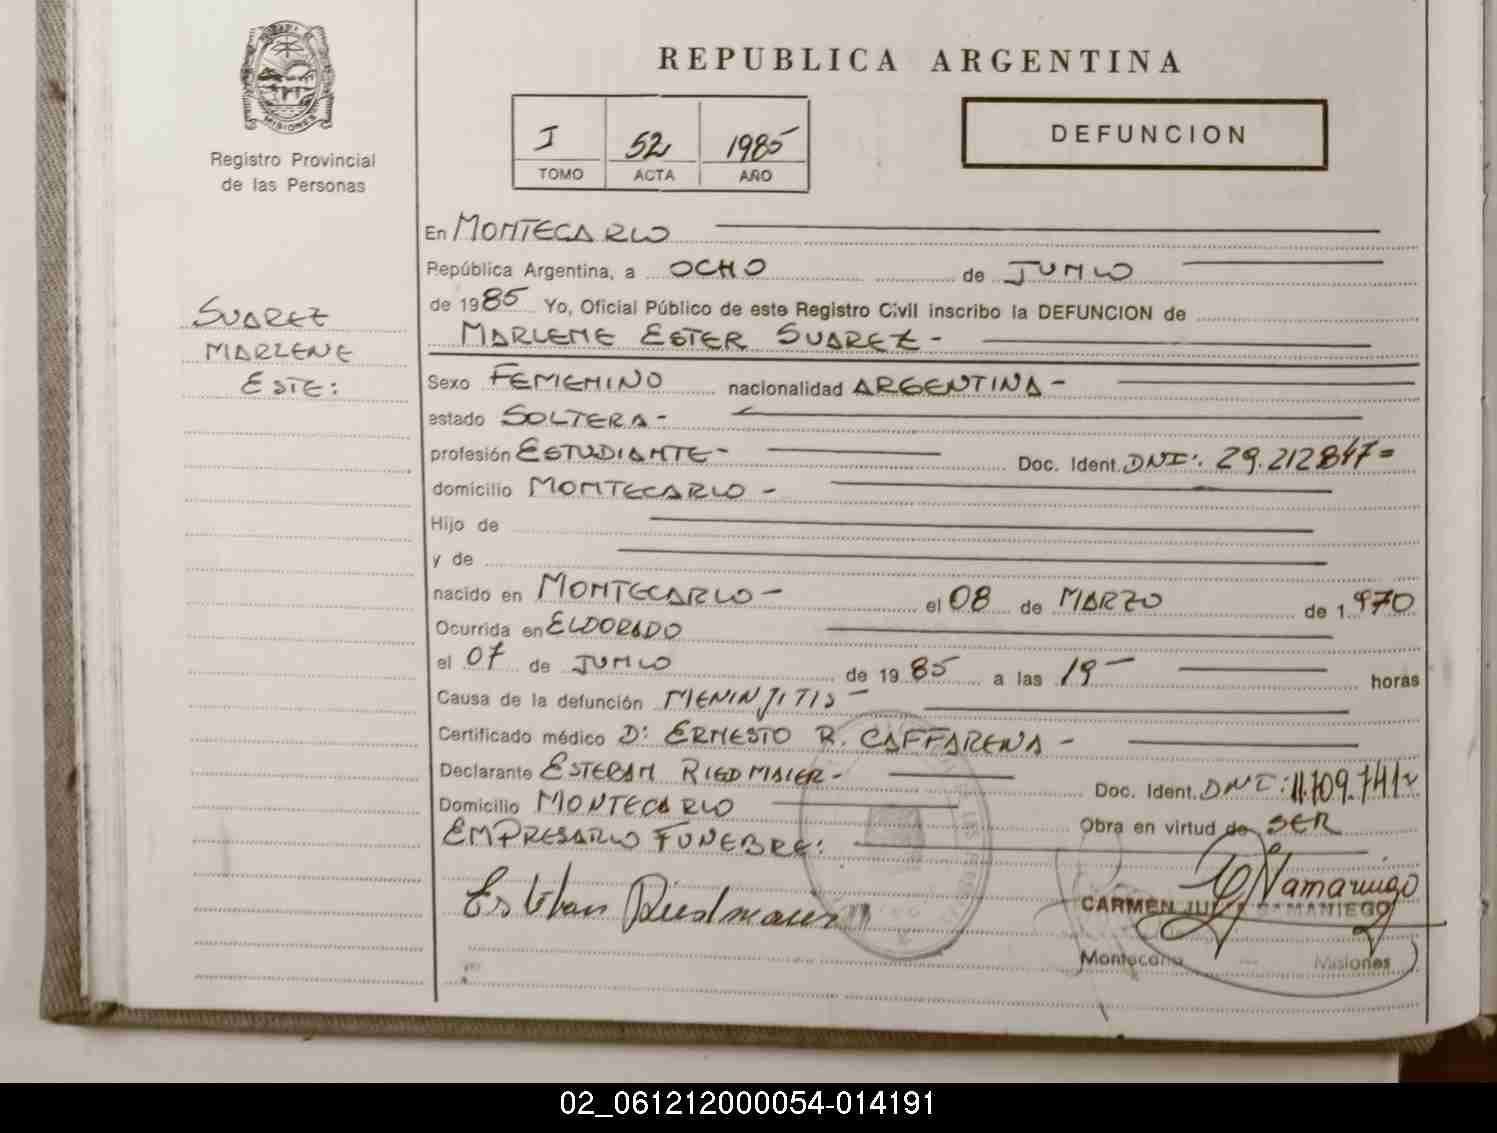 MISIONES
Registro Provincial
de las Personas
SUAREZ
MARLENE
ESTE:
REPUBLICA ARGENTINA
I 52 1985
TOMO ACTA AÑO
DEFUNCION
En MONTECARLO
República Argentina, a OCHO de JUNIO
de 1985 Yo, Oficial Público de este Registro Civil inscribo la DEFUNCION de
MARLENE ESTER SUAREZ -
Sexo FEMENINO nacionalidad ARGENTINA -
estado SOLTERA -
profesión ESTUDIANTE - Doc. Ident. DNI: 29.212847 =
domicilio MONTECARLO -
Hijo de
y de
nacido en MONTECARLO - el 08 de MARZO de 1.970
Ocurrida en ELDORADO
el 07 de JUNIO de 1985 a las 19 - horas
Causa de la defunción MENINJITIS -
Certificado médico Dr. ERNESTO R. CAFFARENA -
Declarante ESTEBAN RIEDMAIER - Doc. Ident. DNI: 11.709.741
Domicilio MONTECARLO Obra en virtud de SER
EMPRESARIO FUNEBRE:
Esteban Riedmaier
CARMEN SAMANIEGO
Montecarlo Misiones
02_061212000054-014191